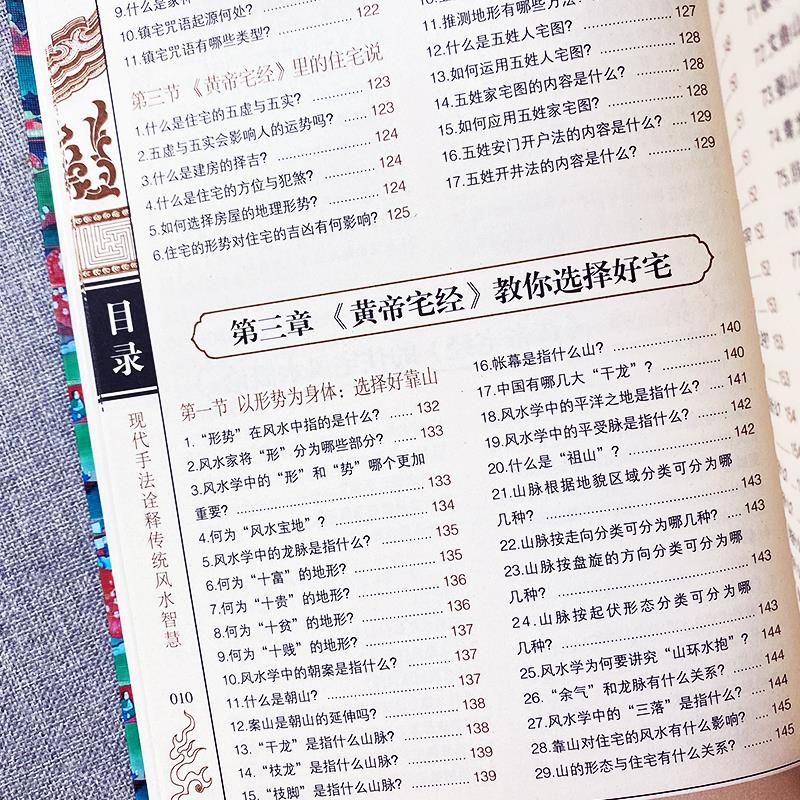 10.镇宅咒语起源何处? 122
11.镇宅咒语有哪些类型?
第三节 《黄帝宅经》里的住宅说
1.什么是住宅的五虚与五实? 123
2.五虚与五实会影响人的运势吗? 123
3.什么是建房的择吉? 124
4.什么是住宅的方位与犯煞? 124
5.如何选择房屋的地理形势? 124
6.住宅的形势对住宅的吉凶有何影响? 125
11.推测地形有哪些方法? 127
12.什么是五姓人宅图? 128
13.如何运用五姓人宅图? 128
14.五姓家宅图的内容是什么? 128
15.如何应用五姓家宅图? 129
16.五姓安门开户法的内容是什么? 129
17.五姓开井法的内容是什么?
第三章 《黄帝宅经》教你选择好宅
第一节 以形势为身体:选择好靠山
1.“形势”在风水中指的是什么? 132
2.风水家将“形”分为哪些部分? 133
3.风水学中的“形”和“势”哪个更加
重要? 133
4.何为“风水宝地”? 134
5.风水学中的龙脉是指什么? 135
6.何为“十富”的地形? 135
7.何为“十贵”的地形? 136
8.何为“十贫”的地形? 136
9.何为“十贱”的地形? 137
10.风水学中的朝案是指什么? 137
11.什么是朝山? 137
12.案山是朝山的延伸吗? 138
13.“干龙”是指什么山脉? 138
14.“枝龙”是指什么山脉? 139
15.“枝脚”是指什么山脉? 139
16.帐幕是指什么山? 140
17.中国有哪几大“干龙”? 140
18.风水学中的平洋之地是指什么? 141
19.风水学中的平受脉是指什么? 142
20.什么是“祖山”? 142
21.山脉根据地貌区域分类可分为哪
几种? 143
22.山脉按走向分类可分为哪几种? 143
23.山脉按盘旋的方向分类可分为哪
几种? 143
24.山脉按起伏形态分类可分为哪
几种? 143
25.风水学为何要讲究“山环水抱”? 144
26.“余气”和龙脉有什么关系? 144
27.风水学中的“三落”是指什么? 144
28.靠山对住宅的风水有什么影响? 145
29.山的形态与住宅有什么关系? 145
目录
现代手法诠释传统风水智慧
010